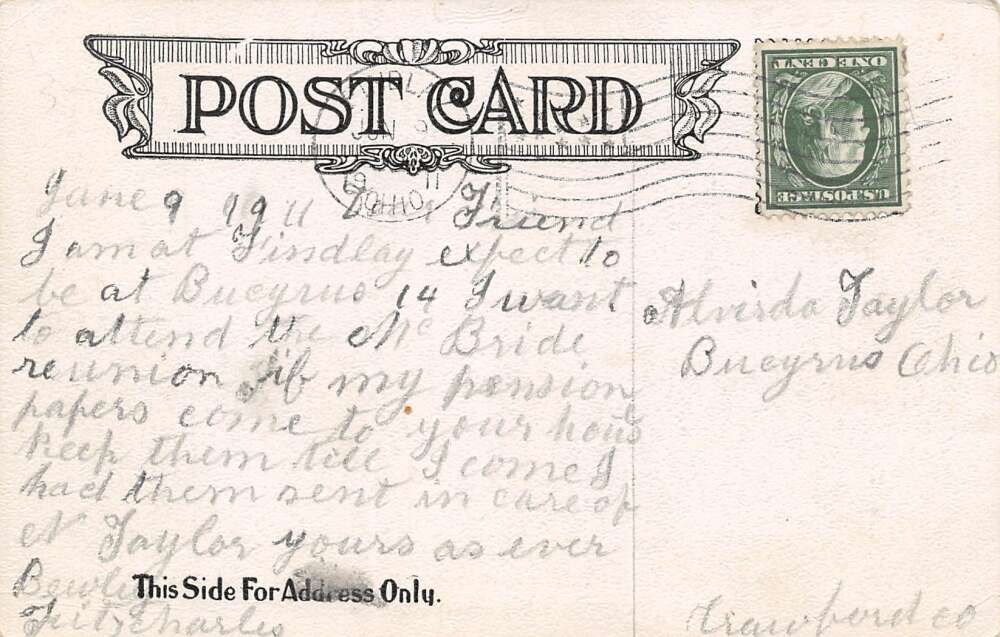 POST CARD
JUN 9
19 11
OHIO
ONE CENT
U.S. POSTAGE
June 9 1911 Friend
I am at Findlay expect to
be at Bucyrus 14 I want
to attend the Mc Bride
reunion if my pension
papers come to your hous
keep them till I come I
had them sent in care of
N Taylor yours as ever
This Side For Address Only.
Fitzcharles
Alvirda Taylor
Bucyrus Ohio
Crawford co